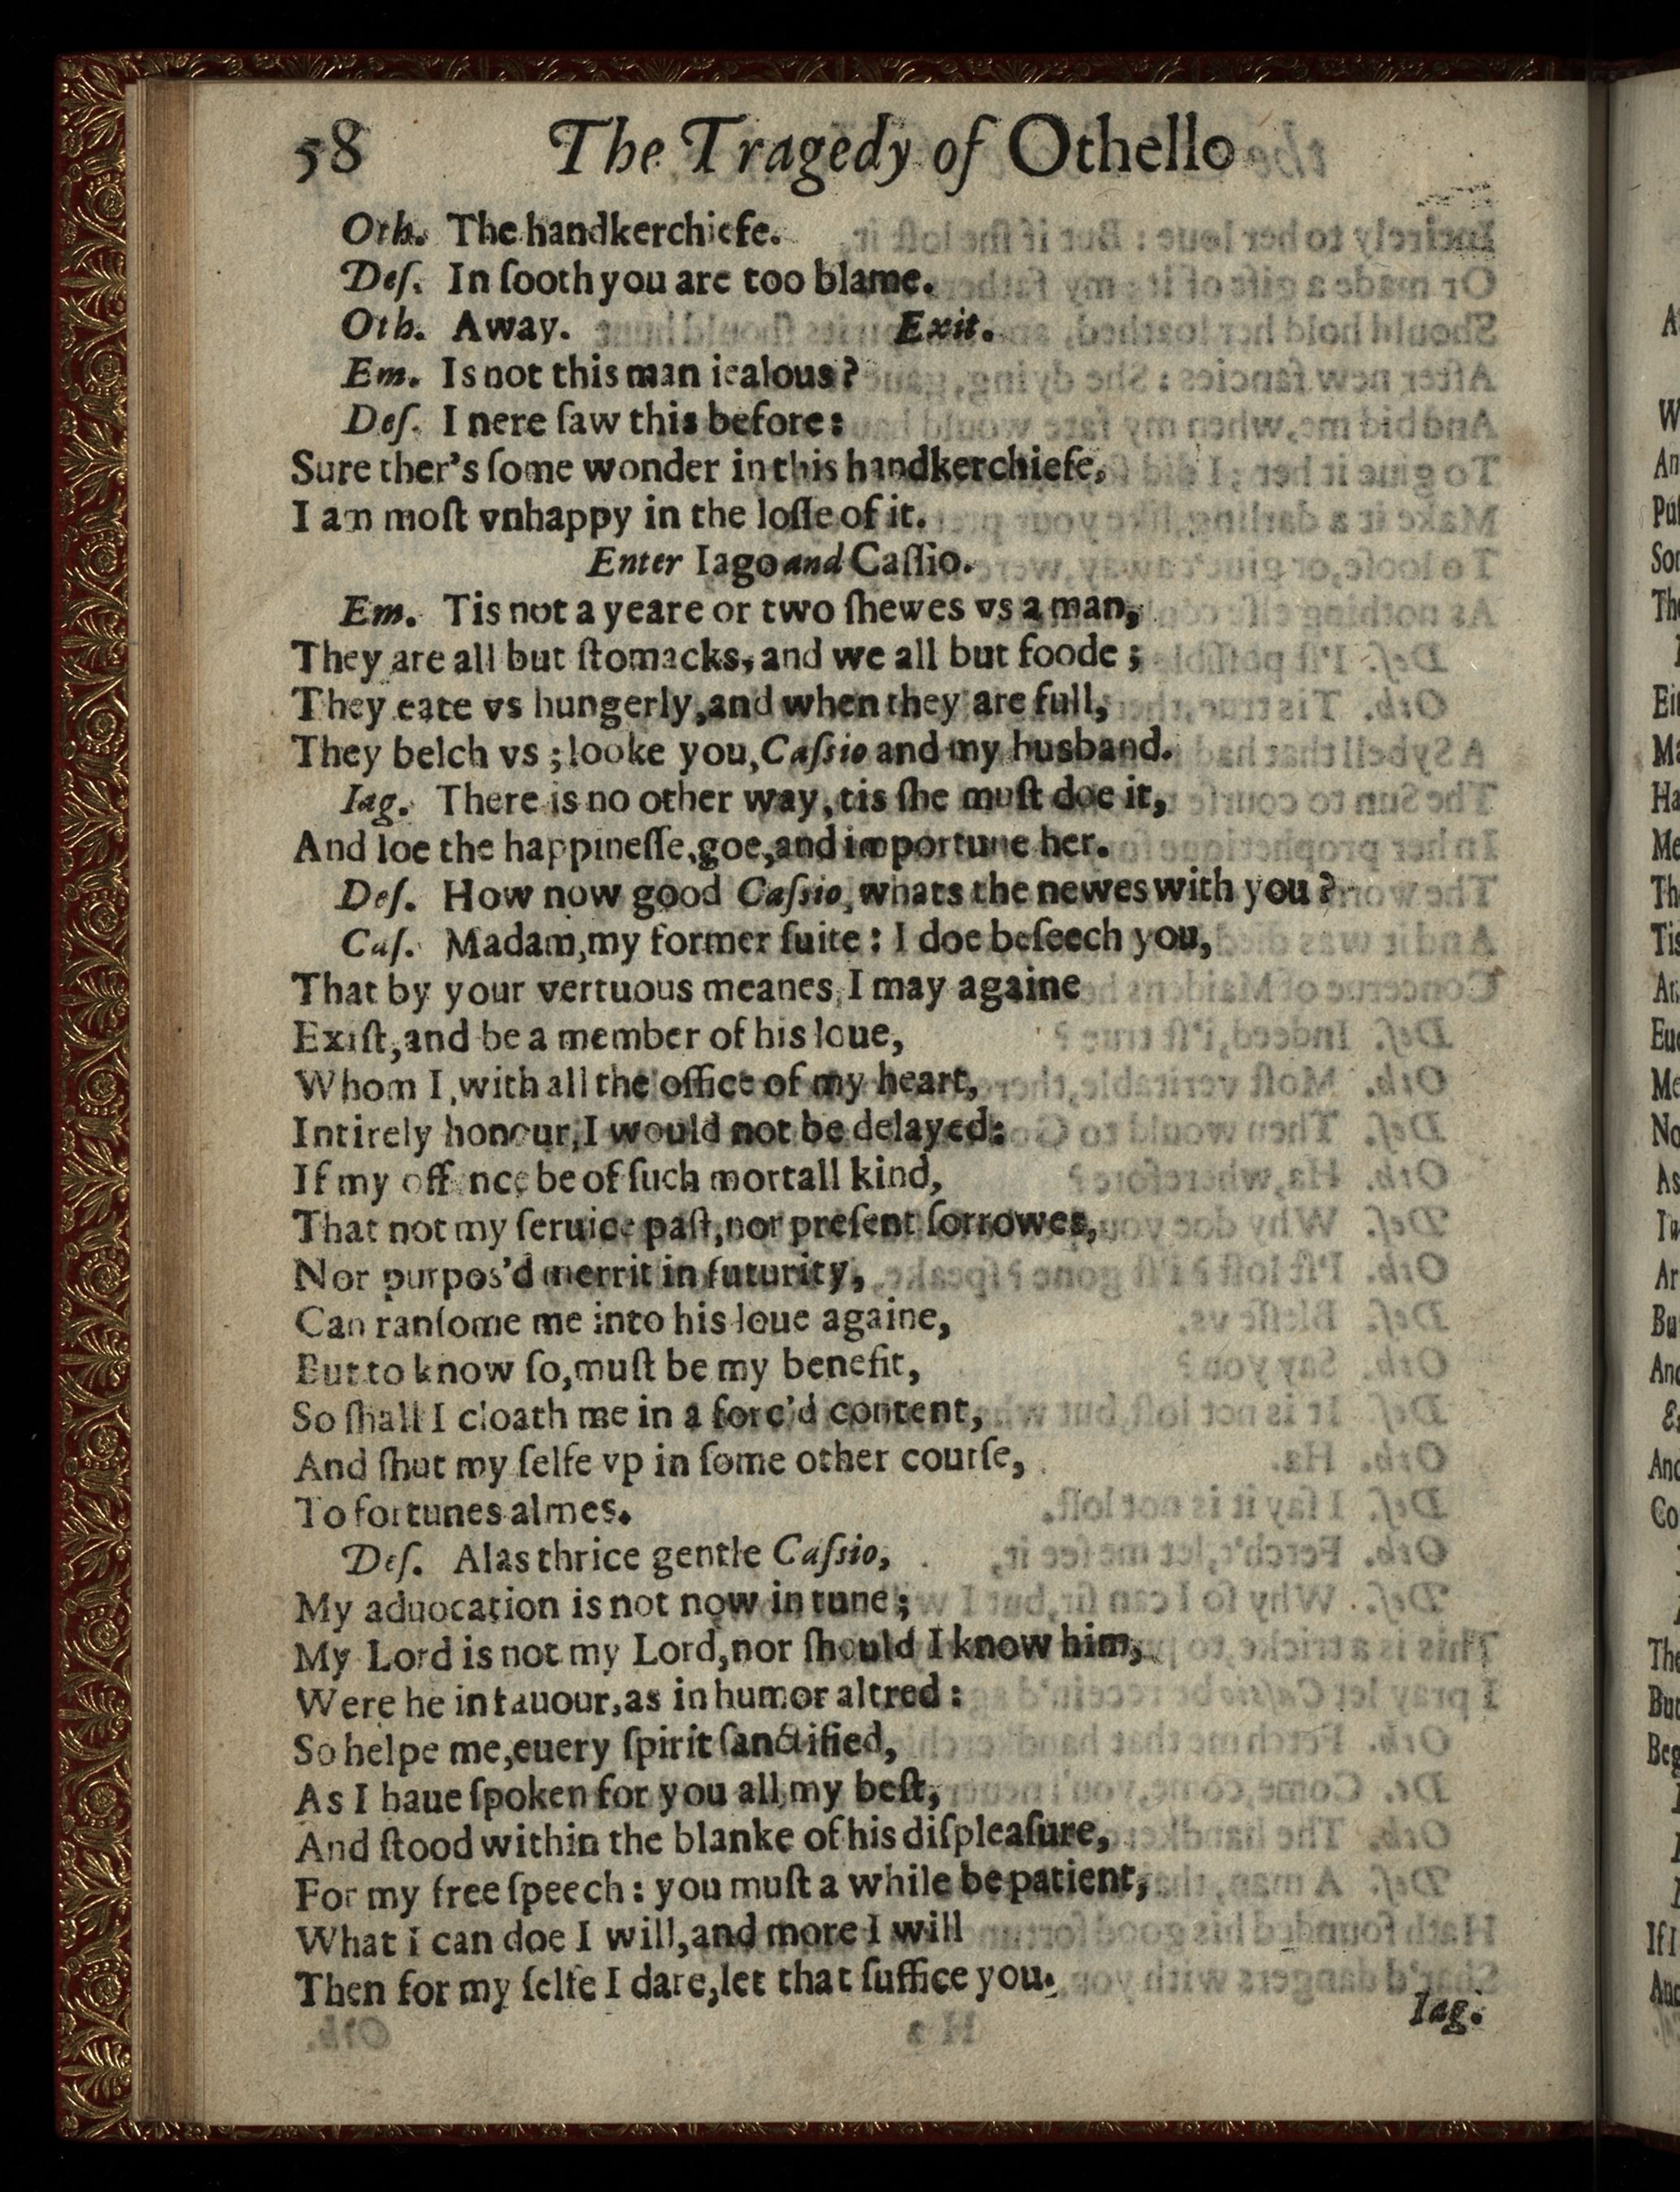 58 The Tragedy of Othello
Oth. The handkerchiefe.
Deſ. In ſooth you are too blame.
Oth. Away. Exit.
Em. Is not this man iealous?
Deſ. I nere ſaw this before:
Sure ther's ſome wonder in this handkerchiefe,
I am moſt vnhappy in the loſſe of it.
Enter Iago and Caſſio.
Em. Tis not a yeare or two ſhewes vs a man,
They are all but ſtomacks, and we all but foode;
They eate vs hungerly, and when they are full,
They belch vs; looke you, Caſsio and my husband.
Iag. There is no other way, tis ſhe muſt doe it,
And loe the happineſſe, goe, and importune her.
Deſ. How now good Caſsio, whats the newes with you?
Caſ. Madam, my former ſuite: I doe beſeech you,
That by your vertuous meanes, I may againe
Exiſt, and be a member of his loue,
Whom I, with all the office of my heart,
Intirely honour, I would not be delayed:
If my offence be of ſuch mortall kind,
That not my ſeruice paſt, nor preſent ſorrowes,
Nor purpos'd merrit in futurity,
Can ranſome me into his loue againe,
But to know ſo, muſt be my benefit,
So ſhall I cloath me in a forc'd content,
And ſhut my ſelfe vp in ſome other courſe,
To fortunes almes.
Deſ. Alas thrice gentle Caſsio,
My aduocation is not now in tune;
My Lord is not my Lord, nor ſhould I know him,
Were he in fauour, as in humor altred:
So helpe me, euery ſpirit ſanctified,
As I haue ſpoken for you all, my beſt,
And ſtood within the blanke of his diſpleaſure,
For my free ſpeech: you muſt a while be patient,
What I can doe I will, and more I will
Then for my ſelfe I dare, let that ſuffice you.
Iag.